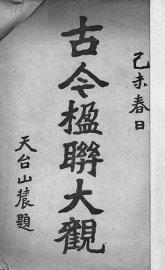 己未春日
古今楹聯大觀
天台山農題